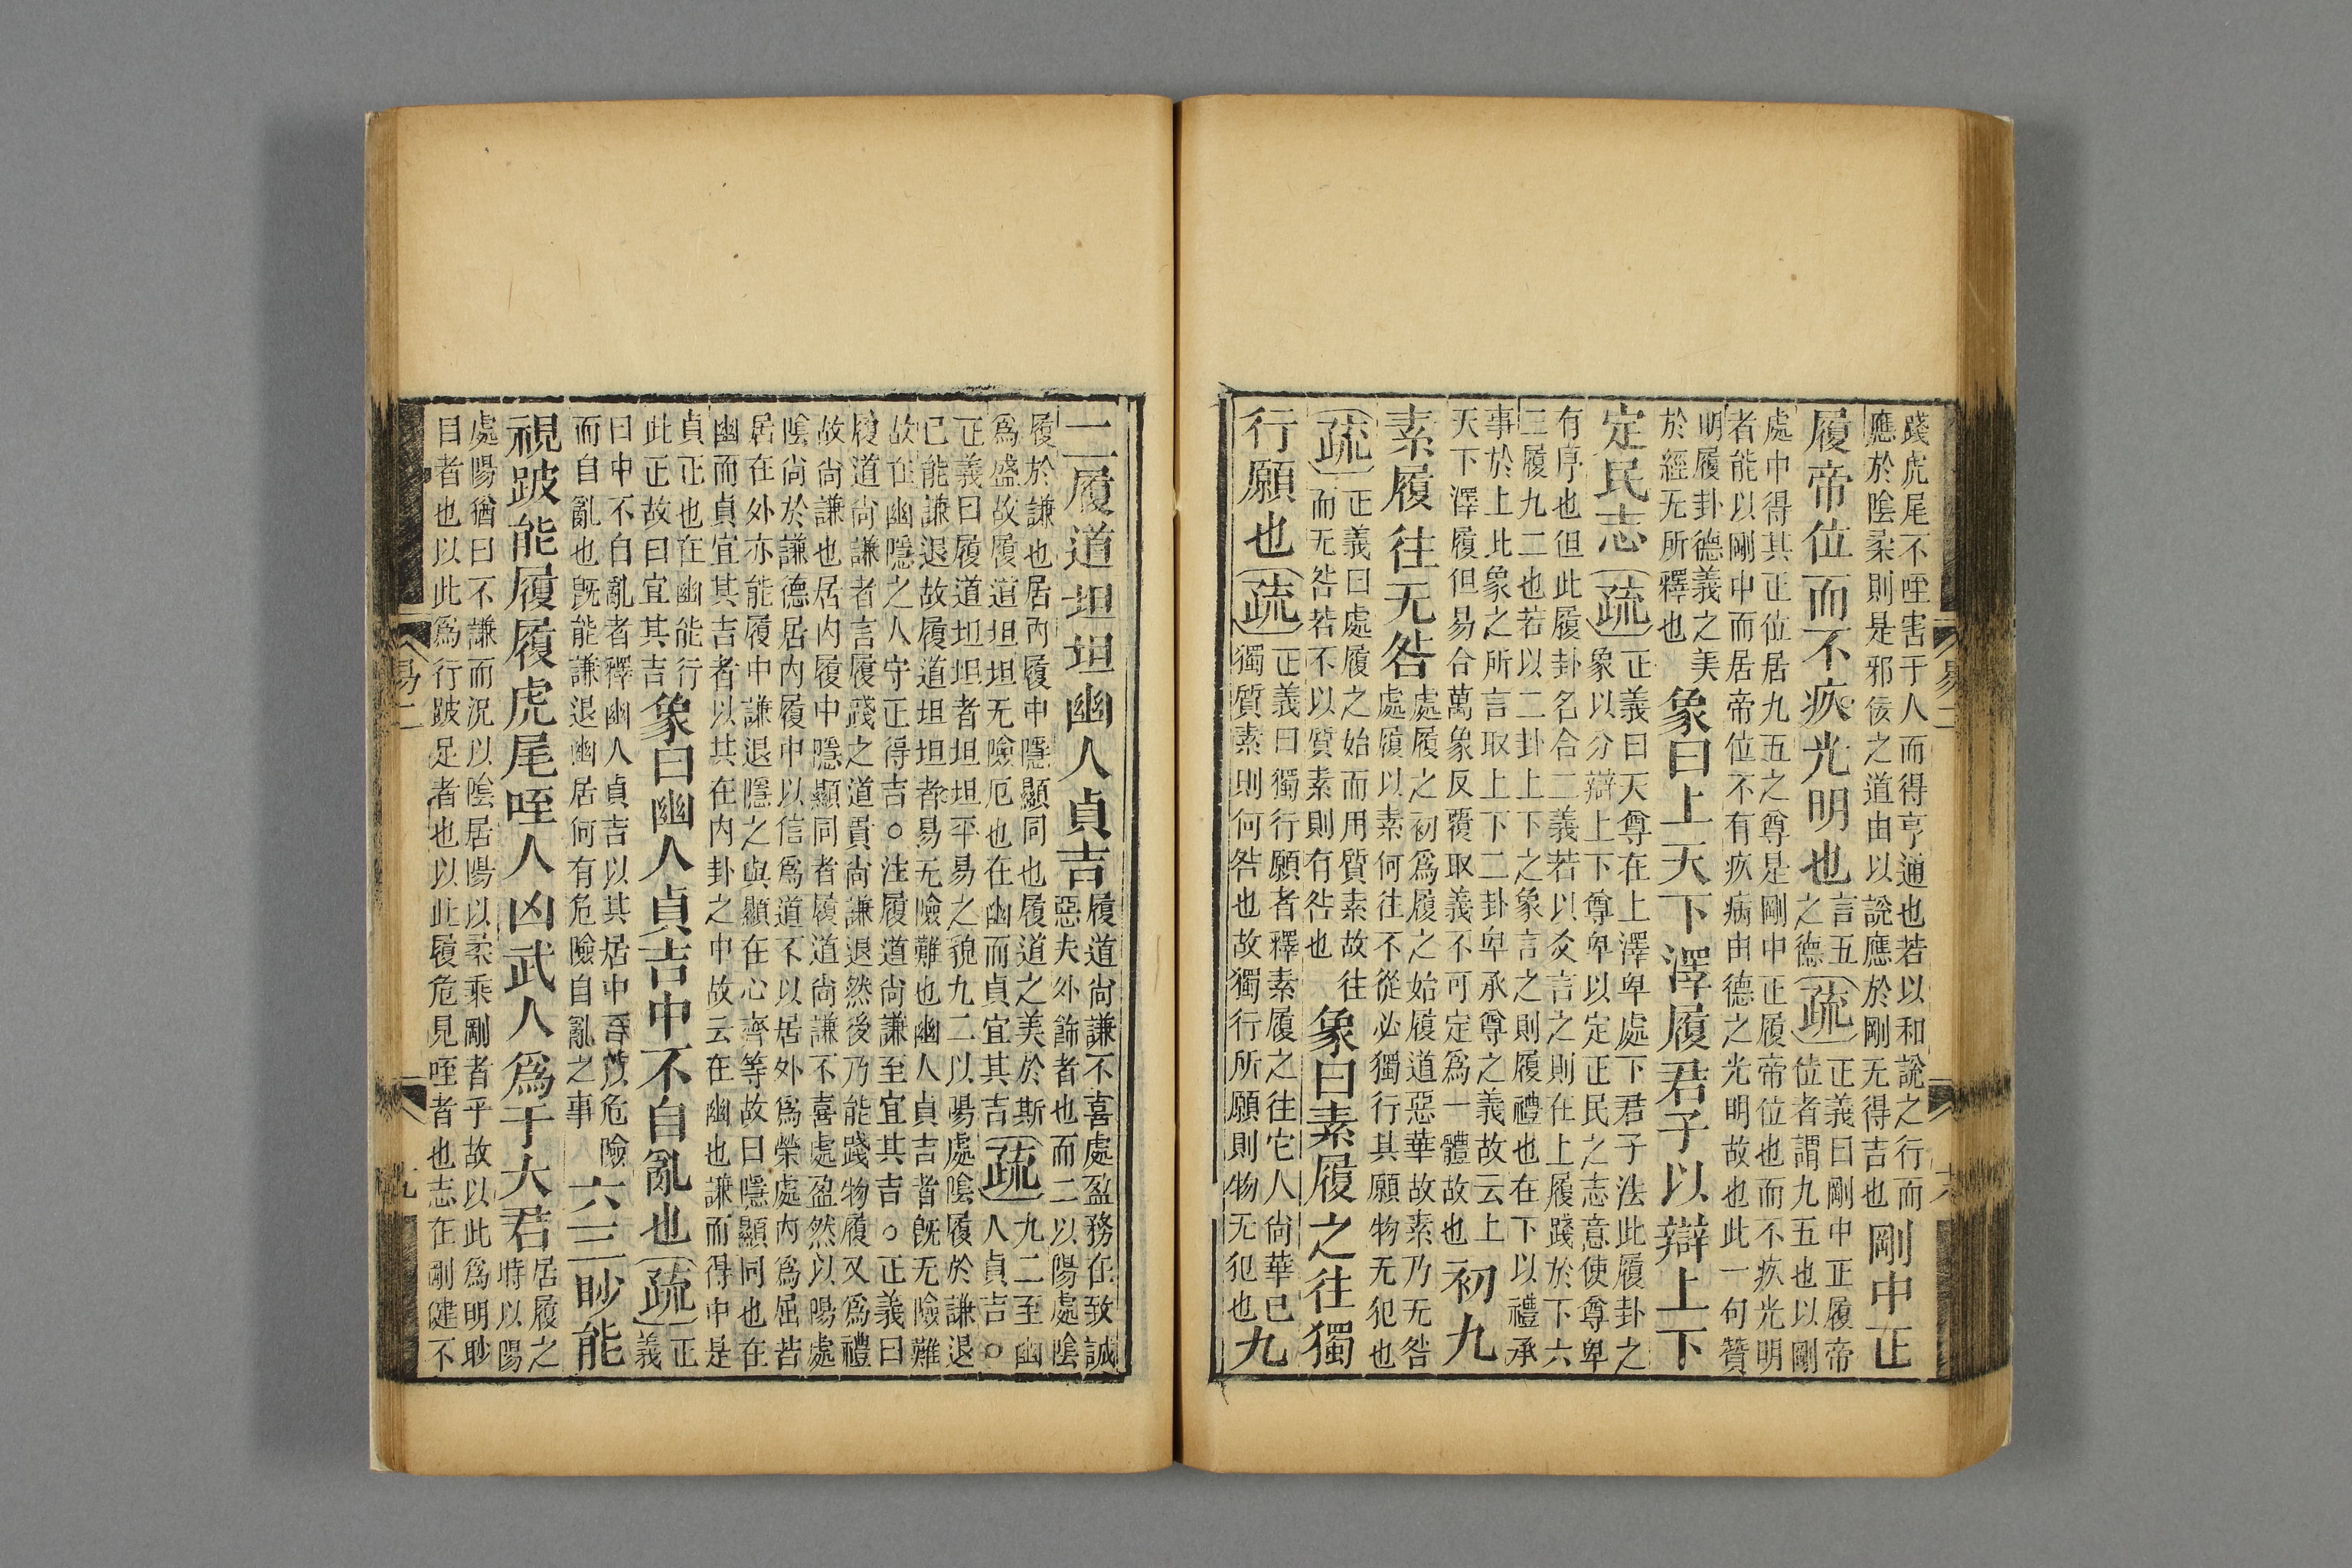 踐虎尾不咥害于人而得亨通也若以和說之行而
應於陰柔則是邪佞之道由以說應於剛无得吉也
剛中正
履帝位而不疚光明也
言五
之德
疏
正義曰剛中正履帝
位者謂九五也以剛
處中得其正位居九五之尊是剛中正履帝位也而不疚光明
者能以剛中而居帝位不有疚病由德之光明故也此一句贊
明履卦德義之美
於經无所釋也
象曰上天下澤履君子以辯上下
定民志
疏
正義曰天尊在上澤卑處下君子法此履卦之
象以分辯上下尊卑以定正民之志意使尊卑
有序也但此履卦名合二義若以爻言之則在上履踐於下六
三履九二也若以二卦上下之象言之則履禮也在下以禮承
事於上此象之所言取上下二卦卑承尊之義故云上
天下澤履但易合萬象反覆取義不可定爲一體故也
初九
素履往无咎
處履之初爲履之始履道惡華故素乃无咎
處履以素何往不從必獨行其願物无犯也
疏
正義曰處履之始而用質素故往
而无咎若不以質素則有咎也
象曰素履之往獨
行願也
疏
正義曰獨行願者釋素履之往它人尚華己
獨質素則何咎也故獨行所願則物无犯也
九
二履道坦坦幽人貞吉
履道尚謙不喜處盈務在致誠
惡夫外飾者也而二以陽處陰
履於謙也居內履中隱顯同也履道之美於斯
爲盛故履道坦坦无險厄也在幽而貞宜其吉
疏
九二至幽
人貞吉○
正義曰履道坦坦者坦坦平易之貌九二以陽處陰履於謙退
已能謙退故履道坦坦者易无險難也幽人貞吉者旣无險難
故在幽隱之人守正得吉○注履道尚謙至宜其吉○正義曰
履道尚謙者言履踐之道貴尚謙退然後乃能踐物履又爲禮
故尚謙也居內履中隱顯同者履道尚謙不喜處盈然以陽處
陰尚於謙德居內履中以信爲道不以居外爲榮處內爲屈若
居在外亦能履中謙退隱之與顯在心齊等故曰隱顯同也在
幽而貞宜其吉者以其在內卦之中故云在幽也謙而得中是
貞正也在幽能行
此正故曰宜其吉
象曰幽人貞吉中不自亂也
疏
正
義
曰中不自亂者釋幽人貞吉以其居中
危險
而自亂也旣能謙退幽居何有危險自亂之事
六三眇能
視跛能履履虎尾咥人凶武人爲于大君
居履之
時以陽
處陽猶曰不謙而況以陰居陽以柔乘剛者乎故以此爲明眇
目者也以此爲行跛足者也以此履危見咥者也志在剛健不
易二
九
易二